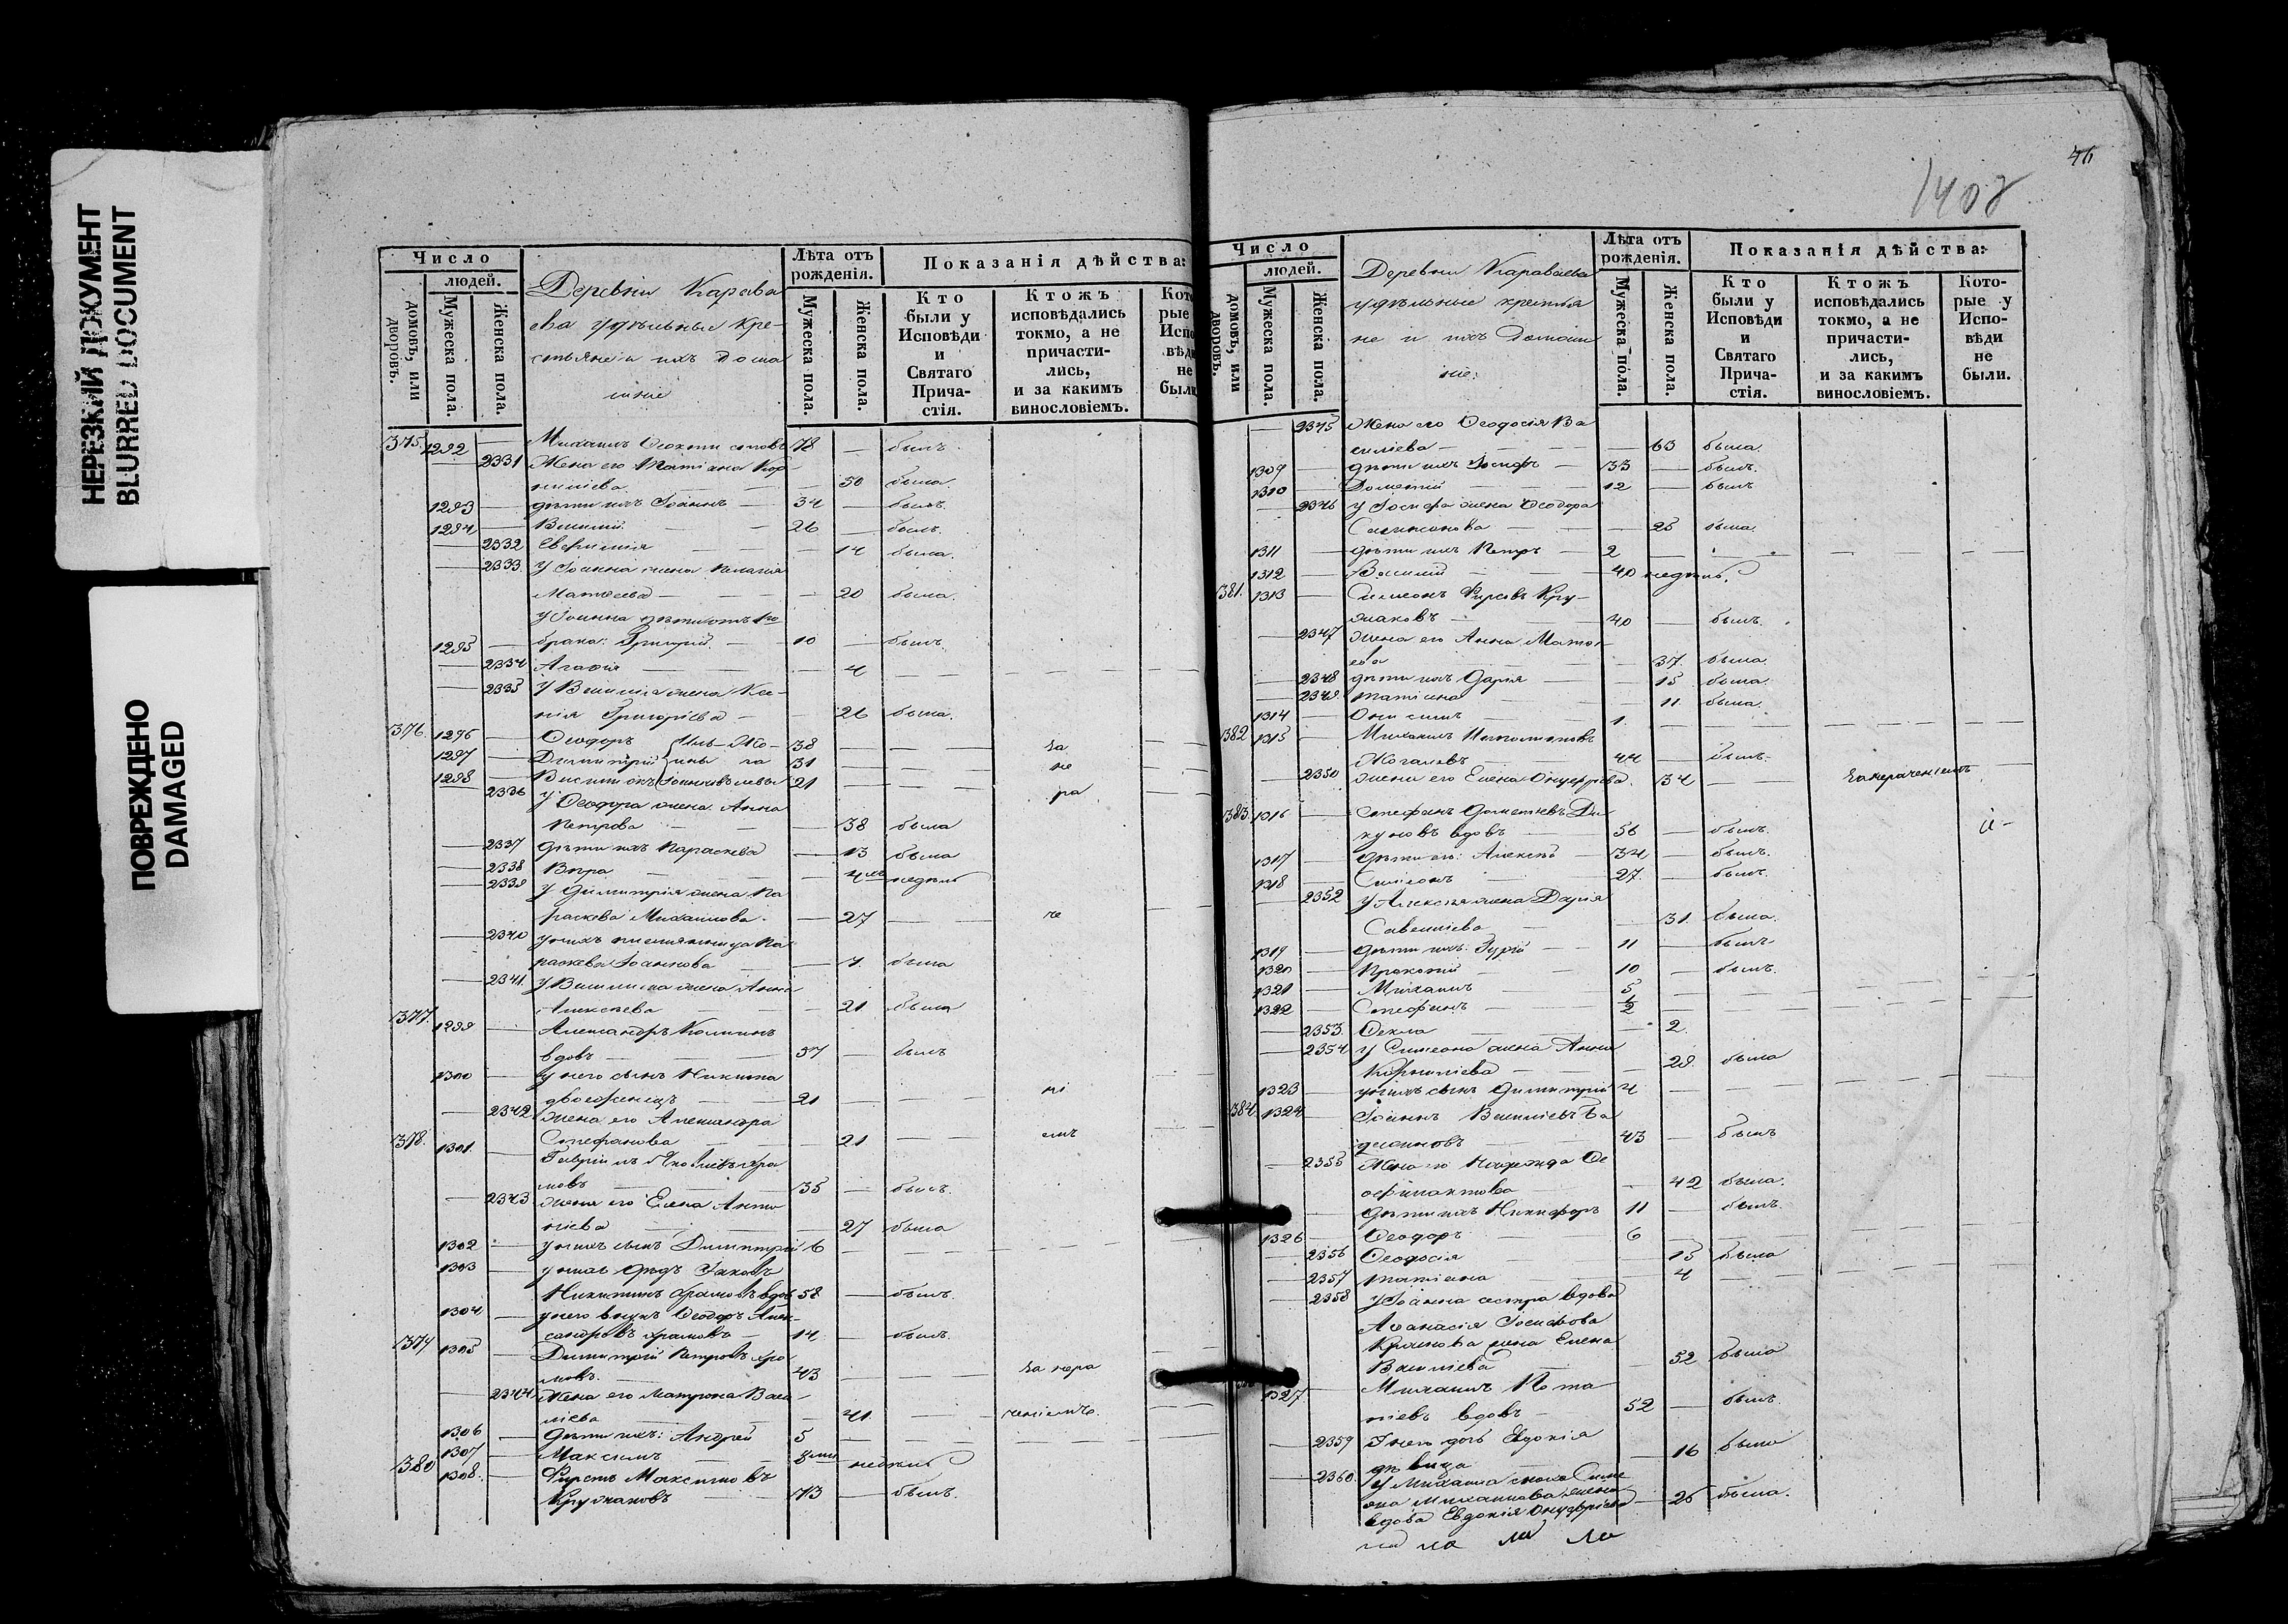 НЕРЕЗКИЙ ДОКУМЕНТ
BLURRED DOCUMENT
ПОВРЕЖДЕНО
DAMAGED
Число
людей.
домовъ, или дворовъ.
Мужеска пола.
Женска пола.
Деревни Карава
ева удѣльные кре-
стьяне и ихъ дома
шние
Лѣта отъ рожденія.
Мужеска пола.
Женска пола.
Показанія дѣйства:
Кто были у Исповѣди и Святаго Прича-стія.
Ктожъ исповѣдались токмо, а не причасти-лись, и за какимъ винословіемъ.
Кото рые Испо вѣди не были
375 1292 — Михаилъ 78 — былъ
— 2331 Жена его Татіана Кор
ниліева — 50 была
1293 — дѣти ихъ Іоаннъ — 34 — былъ.
1294 — Василій — 26 — былъ.
— 2332 Евфимія — 14 была.
— 2333 у Іоанна жена Пелагія
Матѳеева — 20 была.
у Іоанна дѣти отъ 1го
1295 — брака: Григорій — 10 — былъ.
— 2334 Агафія — 4 —
— 2335 у Василія жена Ксе-
нія Григоріева — 26 была.
376 1296 — Ѳеодоръ 38 — за
1297 — Димитрій 31 — не
1298 — 21 — ра
— 2336 у Ѳеодора жена Анна
Петрова — 38 была
— 2337 дѣти ихъ Параскева — 13 была
— 2338 Вѣра — недѣль
— 2339 у Димитрія жена Па
раскева Михаилова — 27 — че
— 2340 у нихъ племянница Па
раскева Іоаннова — 7 была
— 2341 у жена Анна
Алексѣева — 21 была
377 1299 — Александръ
вдовъ — 57 — былъ
1300 — у него сынъ Никита
двоеженецъ — 21 — ні
— 2342 жена его Александра
Стефанова — 21 — емъ
378 1301 — Гавріилъ Хра
мовъ — 35 — былъ.
— 2343 жена его Елена Анто
ніева — 27 была
1302 — у нихъ сынъ Димитрій 6 —
1303 — у нихъ дѣдъ Іаковъ
Никитинъ Храмовъ вдов 58 — былъ.
1304 — у него внукъ Ѳеодоръ Алек-
сандровъ Храмовъ — 14 — былъ.
379 1305 — Димитрій Петровъ Хра
мовъ — 43 — за нера
— 2344 Жена его Матрона Васи
ліева — 41 — ченіемъ.
1306 — дѣти ихъ: Андрей 5 —
1307 — Максимъ — недѣль
380 1308 — Фирсъ Максимовъ
Кружаковъ — 73 — былъ.
46
1408
Число
людей.
домовъ, или дворовъ.
Мужеска пола.
Женска пола.
Деревни Караваева
удѣльные крестья
не и ихъ домаш
ніе.
Лѣта отъ рожденія.
Мужеска пола.
Женска пола.
Показанія дѣйства:
Кто были у Исповѣди и Святаго Прича-стія.
Ктожъ исповѣдались токмо, а не причасти-лись, и за какимъ винословіемъ.
Кото-рые у Испо-вѣди не были.
— 2345 Жена его Ѳеодосія Ва
силіева — 63 была.
1309 — дѣти ихъ Іосифъ — 33 — былъ.
1310 — Дометій — 12 — былъ
— 2346 у Іосифа жена Ѳеодора
— 25 была.
1311 — дѣти ихъ Петръ — 2 —
1312 — Василій — 40 недѣль.
381. 1313 — Симеонъ Фирсовъ Кру-
жаковъ — 40 — былъ.
— 2347 Жена его Анна Матѳе
ева — 37. была.
— 2348 дѣти ихъ Дарія — 15 была.
— 2349 Татіана — 11 была.
1314 — Онисимъ — 1. —
382 1315 — Михаилъ
44 — былъ.
— 2350 жена его Елена Онуфріева. 34 — за нераченіемъ
383. 1316 — Стефанъ Дометіевъ Ди
куновъ вдовъ — 56 — былъ.
1317 — дѣти его: Алексѣй — 34 — былъ.
1318 — Симеонъ — 27. — былъ
— 2352 у Алексѣя жена Дарія
Савеліева — 31. была.
1319 — дѣти ихъ: Гурій — 11 — былъ
1320 — Прокопій — 10 — былъ.
1321 — Михаилъ — 5 —
1322 — Стефанъ — ½ —
— 2353 Ѳекла — 2. —
— 2354 у Симеона жена Анна
Корниліева — 29. была
1323 — у нихъ сынъ Димитрій 4 —
384 1324 — Іоаннъ Василіевъ Ба
43 — былъ
— 2355 Жена его Надежда Ѳе
офилактова — 42 была.
дѣти ихъ Никифоръ 11 — былъ.
1326 — Ѳеодоръ — 6 —
— 2356 Ѳеодосія — 15 была
— 2357 Татіана — 4 —
— 2358 у Іоанна сестра вдова
Аѳанасія Іосифова
жена Елена
Василіева — 52 была
1327 — Михаилъ Пота
піевъ вдовъ — 52 — былъ.
— 2359 У него дочь Евдокія
дѣвица — 16 была
— 2360. У Михаила сноха Симе
она Михаилова жена
вдова Евдокія Онуфріева — 26 была.